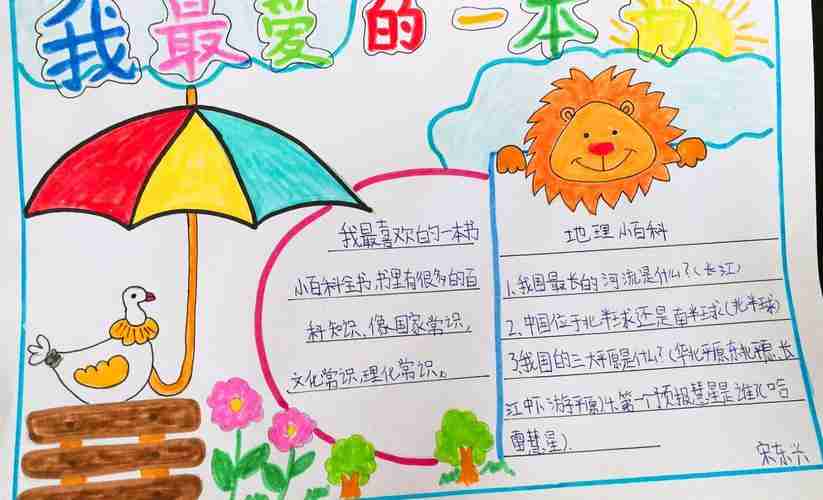 我最爱的一本书
我最喜欢的一本书
小百科全书,书里有很多的百
科知识、像国家常识,
文化常识,理化常识。
地理小百科
1.我国最长的河流是什么?(长江)
2.中国位于北半球还是南半球(北半球)
3.我国的三大平原是什么?(华北平原,东北平原,长
江中下游平原)4.第一个预报彗星是谁?(哈
雷彗星).
宋东兴